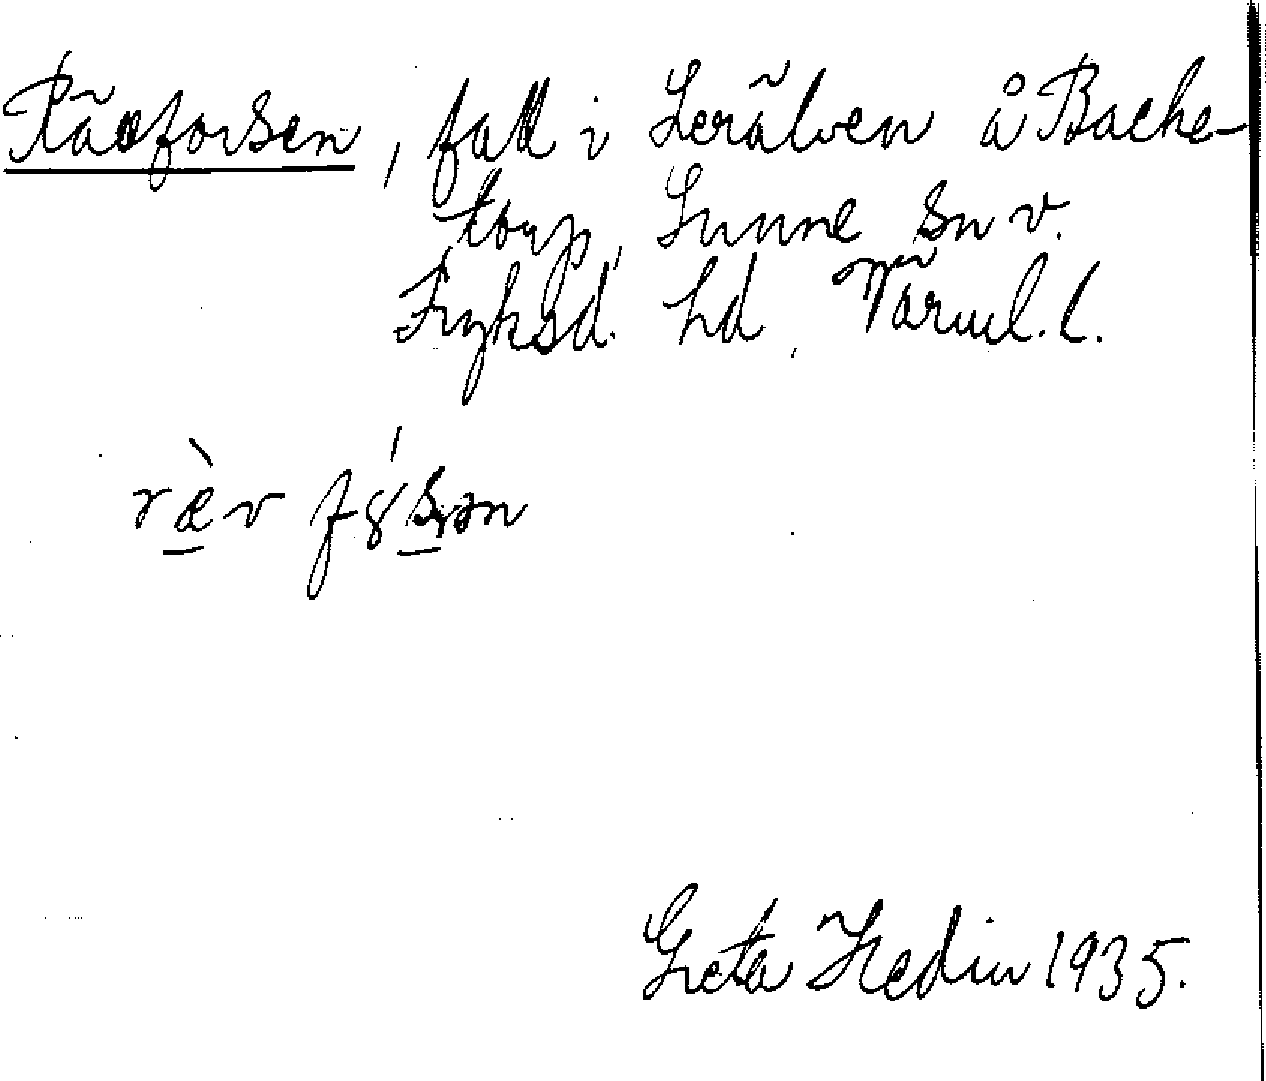 Rävforsen, fall i Lerälven å Backe-
torp, Sunne sn v.
Fryksd. hd, Värml. l.
ræ̀v fȣ́sən
Greta Hedin 1935.